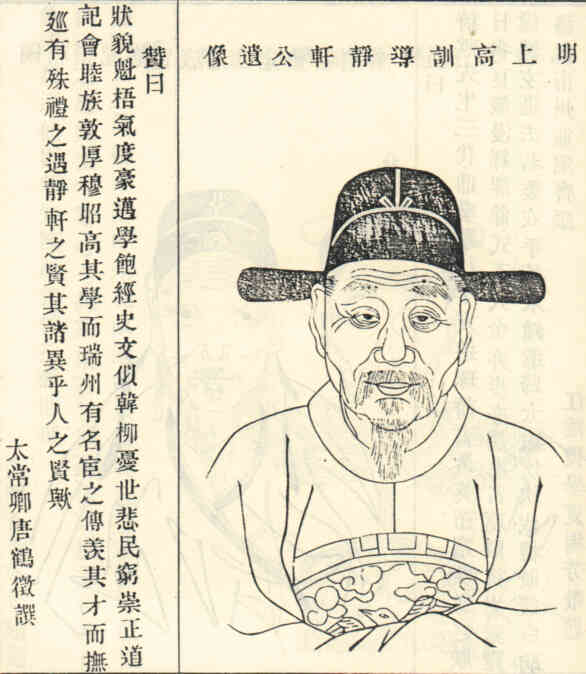 明上高訓導靜軒公遺像
贊曰
狀貌魁梧氣度豪邁學飽經史文似韓柳憂世悲民窮崇正道
記會睦族敦厚穆昭高其學而瑞州有名宦之傳羨其才而撫
廵有殊禮之遇靜軒之賢其諸異乎人之賢歟
太常卿唐鶴徵譔